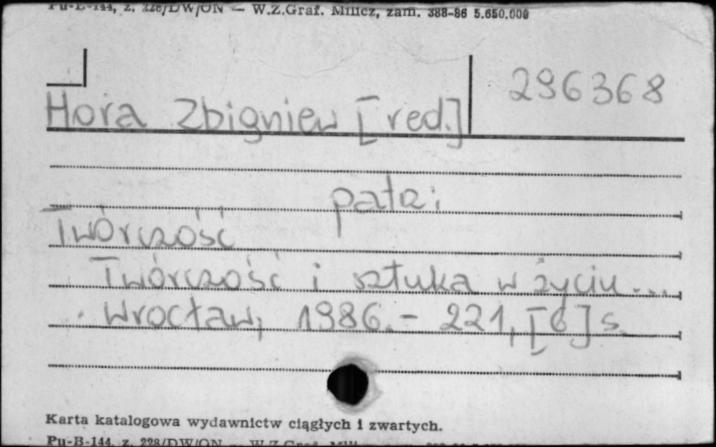 Pu-B-144, z. 228/DW/ON — W.Z.Graf. Milicz, zam. 388-86 5.650.000
296368
Hora Zbigniew [red.]
patrz:
Twórczość
Twórczość i sztuka w życiu...
Wrocław, 1986. - 221, [6] s.
Karta katalogowa wydawnictw ciągłych i zwartych.
Pu-B-144, z. 228/DW/ON — W.Z.Graf. Milicz